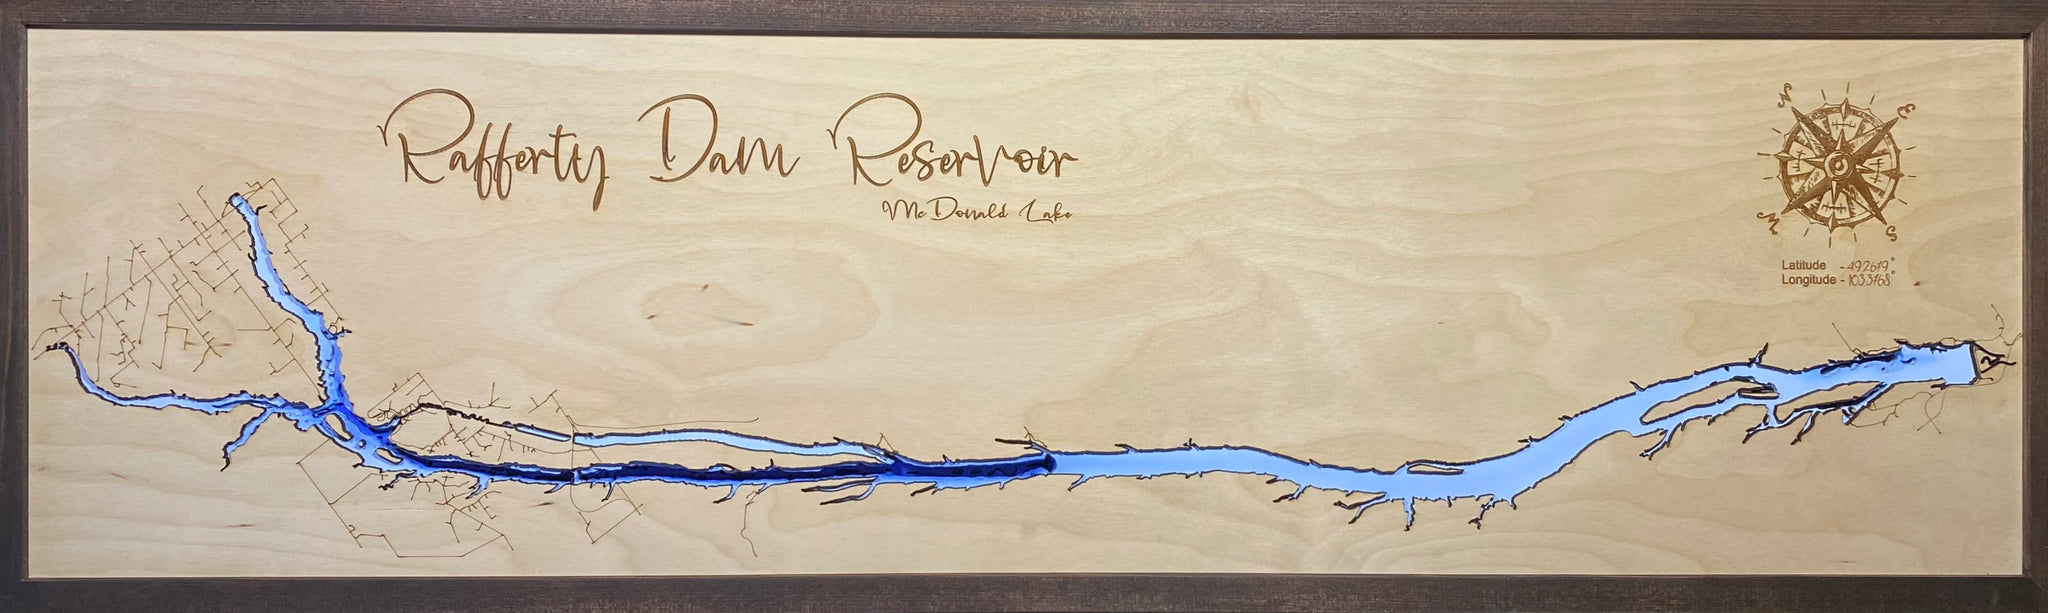 Rafferty Dam Reservoir
McDonald Lake
N E
W S
Latitude - 49.2619°
Longitude - 103.3768°